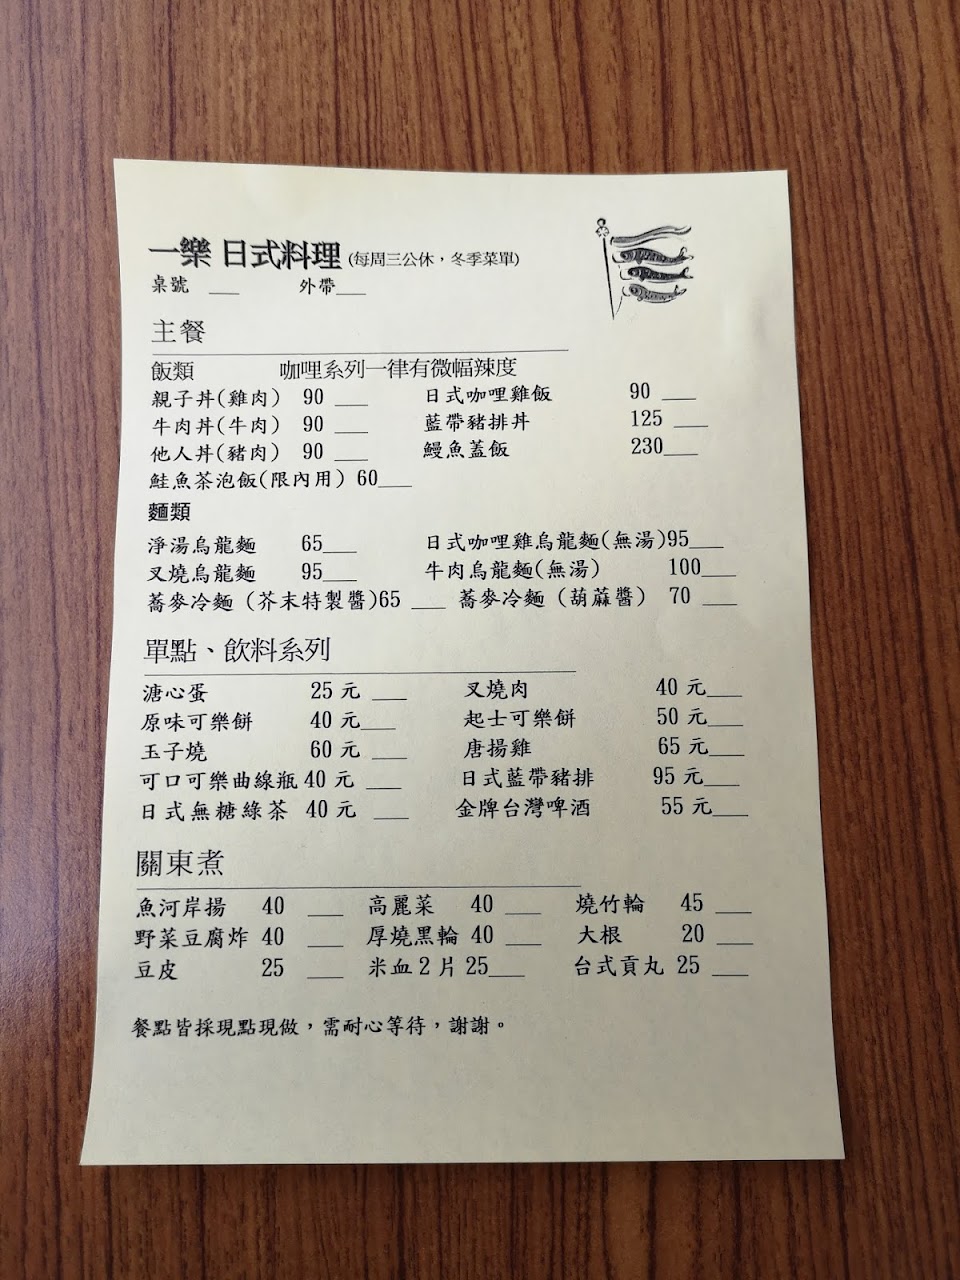 一樂 日式料理 (每周三公休，冬季菜單)
桌號 ___ 外帶___
主餐
飯類 咖哩系列一律有微幅辣度
親子丼(雞肉) 90 ___ 日式咖哩雞飯 90 ___
牛肉丼(牛肉) 90 ___ 藍帶豬排丼 125 ___
他人丼(豬肉) 90 ___ 鰻魚蓋飯 230___
鮭魚茶泡飯(限內用) 60___
麵類
淨湯烏龍麵 65___ 日式咖哩雞烏龍麵(無湯)95___
叉燒烏龍麵 95___ 牛肉烏龍麵(無湯) 100___
蕎麥冷麵 (芥末特製醬)65 ___ 蕎麥冷麵 (葫蔴醬) 70 ___
單點、飲料系列
溏心蛋 25 元 ___ 叉燒肉 40 元___
原味可樂餅 40 元___ 起士可樂餅 50 元___
玉子燒 60 元 ___ 唐揚雞 65 元___
可口可樂曲線瓶 40 元 ___ 日式藍帶豬排 95 元___
日式無糖綠茶 40 元 ___ 金牌台灣啤酒 55 元___
關東煮
魚河岸揚 40 ___ 高麗菜 40 ___ 燒竹輪 45 ___
野菜豆腐炸 40 ___ 厚燒黑輪 40 ___ 大根 20 ___
豆皮 25 ___ 米血 2 片 25___ 台式貢丸 25 ___
餐點皆採現點現做，需耐心等待，謝謝。